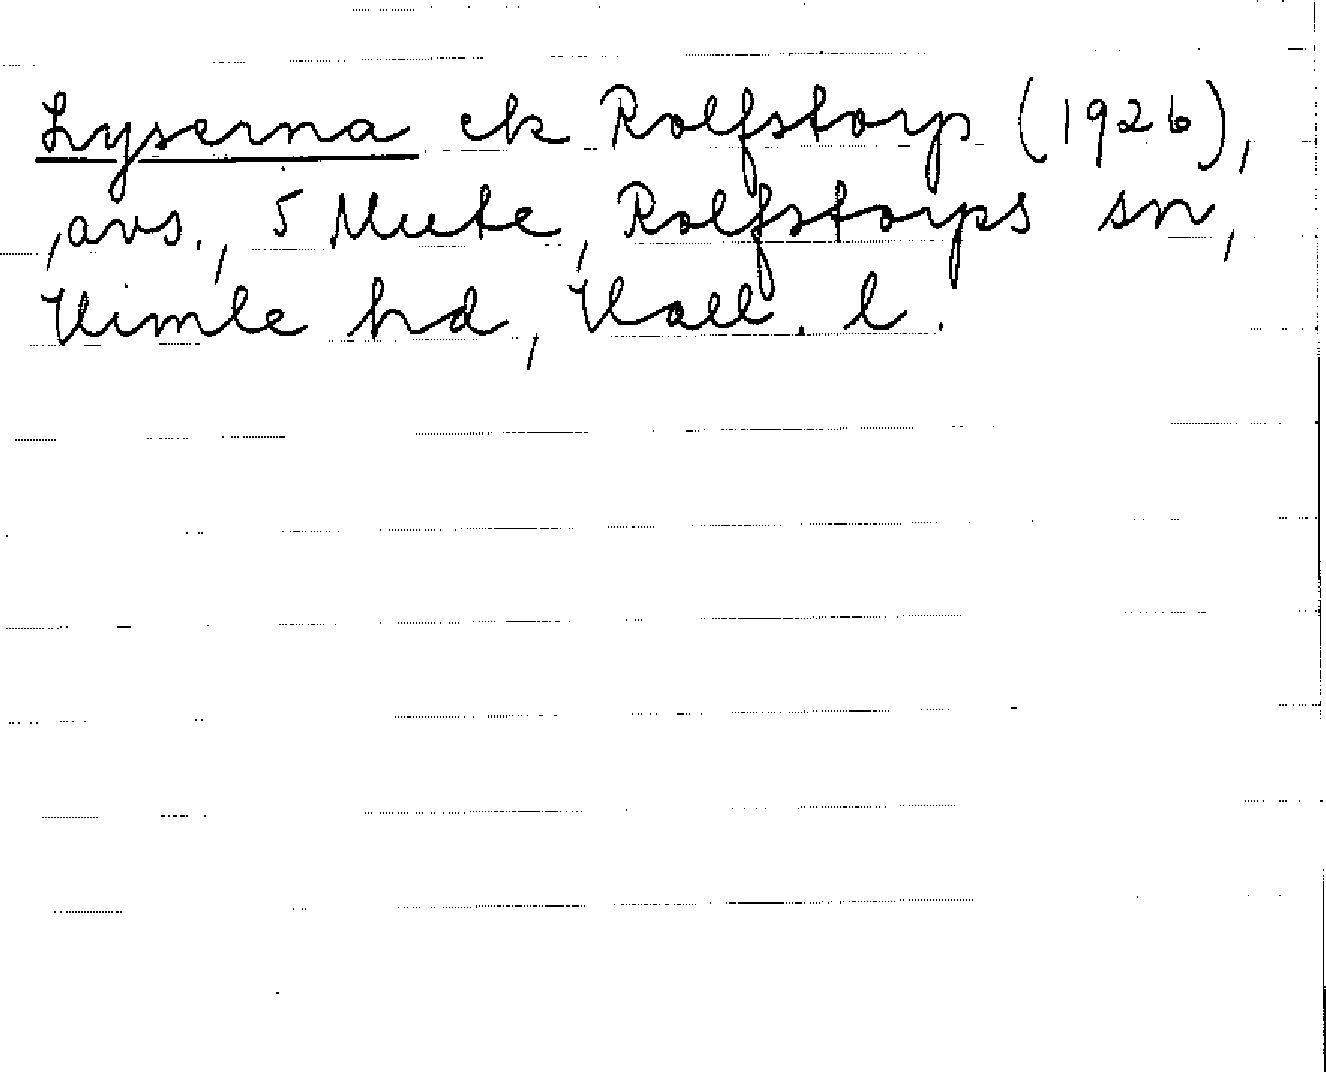 Lyserna ek Rolfstorp (1926),
avs., 5 Mute, Rolfstorps sn,
Himle hd, Hall. l.